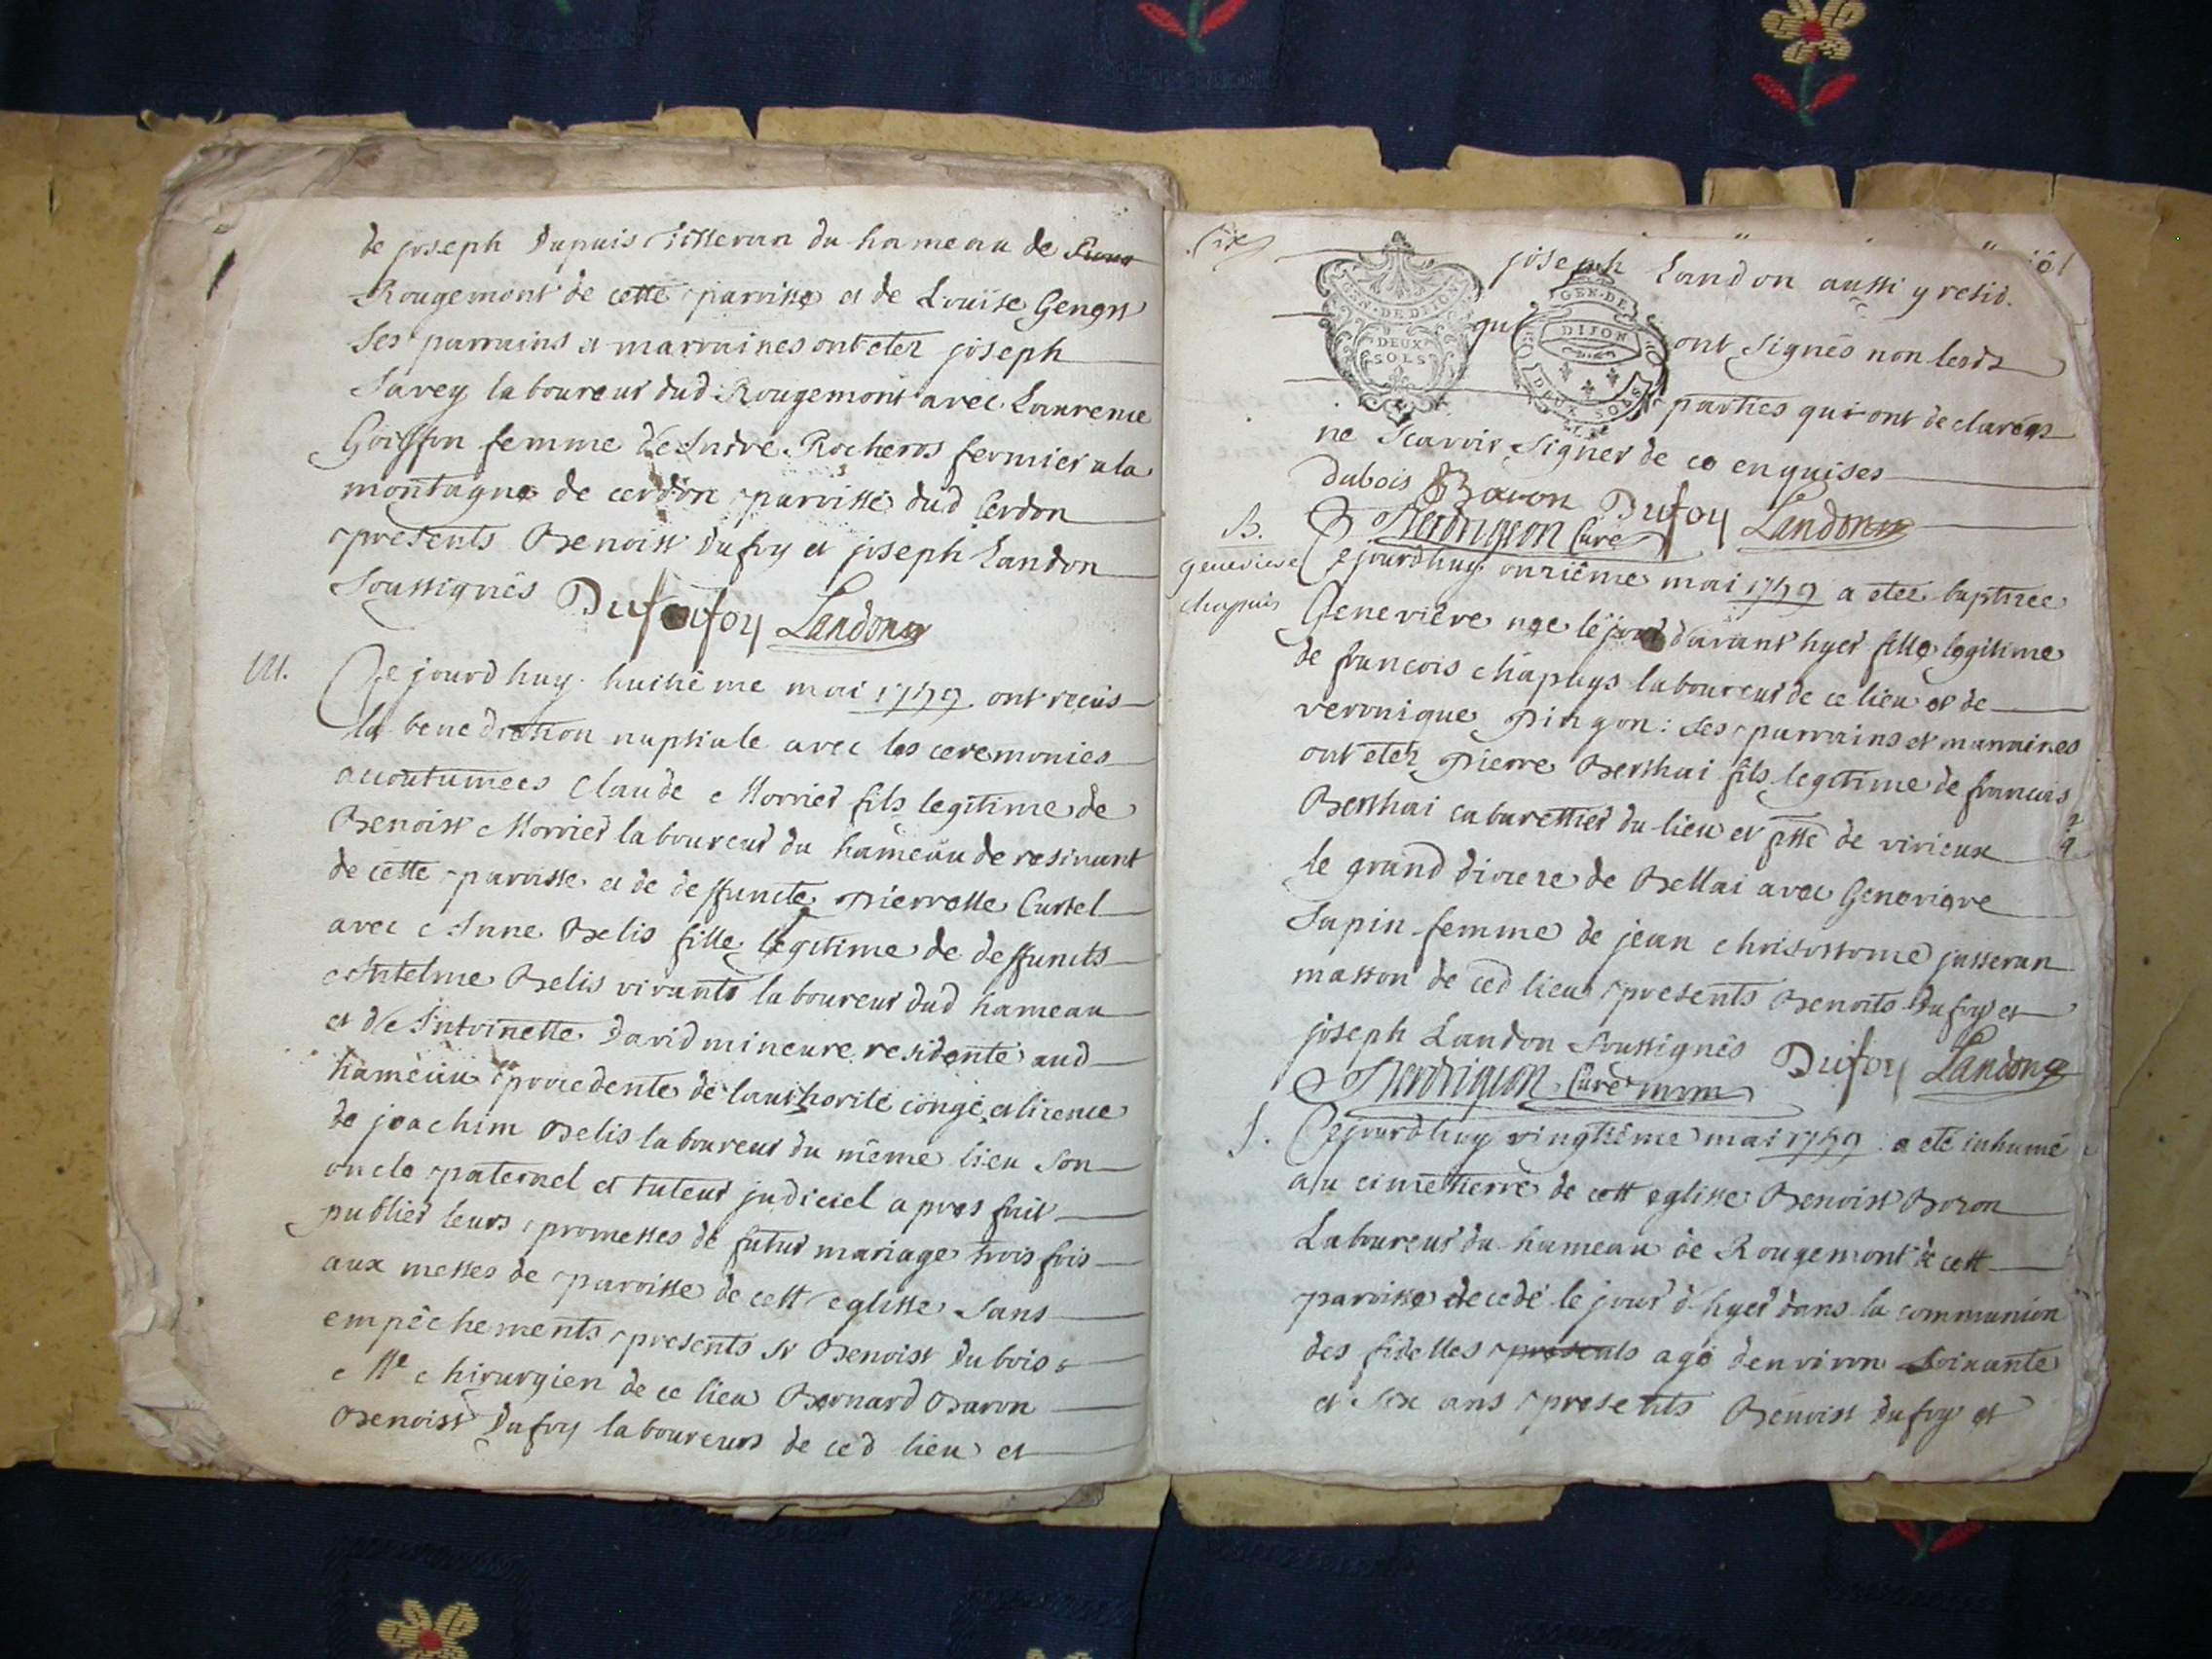 de joseph Dupuis tisseran du hameau de
Rougemont de cette paroisse et de Louïse Genost
ses parrains et marraines ont etez joseph
Savey laboureur dud Rougemont avec Laurence
Goiffon femme de Andre Rocheros fermier a la
montagne de cerdon paroisse dud Cerdon
presents Benoist Dufoy et joseph Landon
soussignés Dufoy Landon
M.
Ce jourd huy huitiême mai 1759 ont reçus
la benediction nuptiale avec les ceremonies
accoutumees Claude Morrier fils legitime de
Benoist Morrier laboureur du hameau de resinant
de cette paroisse et de deffuncte Pierrette Curtel
avec Anne Belis fille legitime de deffuncts
Antelme Belis vivants laboureur dud hameau
et de Antoinette David mineure residente aud
hameau procedente de lauthorité congé et licence
de joachim Belis laboureur du même lieu son
oncle paternel et tuteur judiciel apres fait
publier leurs promesses de futur mariage trois fois
aux messes de paroisse de cett eglisse sans
empêchements presents sr Benoist Dubois
Me chirurgien de ce lieu Bernard Baron
Benoist Dufoy laboureurs de ced lieu et
joseph Landon aussi y resid.
GEN. DE DIJON
DEUX
SOLS
GEN. DE
DIJON
DEUX SOLS
qui ont signés non lesdt
parties qui ont declarées
ne scavoir signer de ce enquises
dubois Baron Dufoy Landon
Curé
B.
genevieve
chapuis
Ce jourdhuy onziême mai 1759 a etez baptizee
Geneviève nee le jour d'avant hyer fille legitime
de francois chapuys laboureur de ce lieu et de
veronique Pingon : ses parrains et marraines
ont etez Pierre Berthai fils legitime de francois
Berthai cabarettier du lieu et psse de virieux
le grand diocèze de Bellai avec Genevieve
Sapin femme de jean chrisostome jusseran
masson de ced lieu presents Benoits Dufoy et
joseph Landon soussignés Dufoy Landon
Curé
S.
Cejourdhuy vingtiême mai 1759 a eté inhumé
au cimettierre de cett eglisse Benoist Boron
Laboureur du hameau de Rougemont de cett
paroisse decedé le jour d'hyer dans la communion
des fidelles presents agé denviron soixante
et six ans presents Benoist Dufoy et